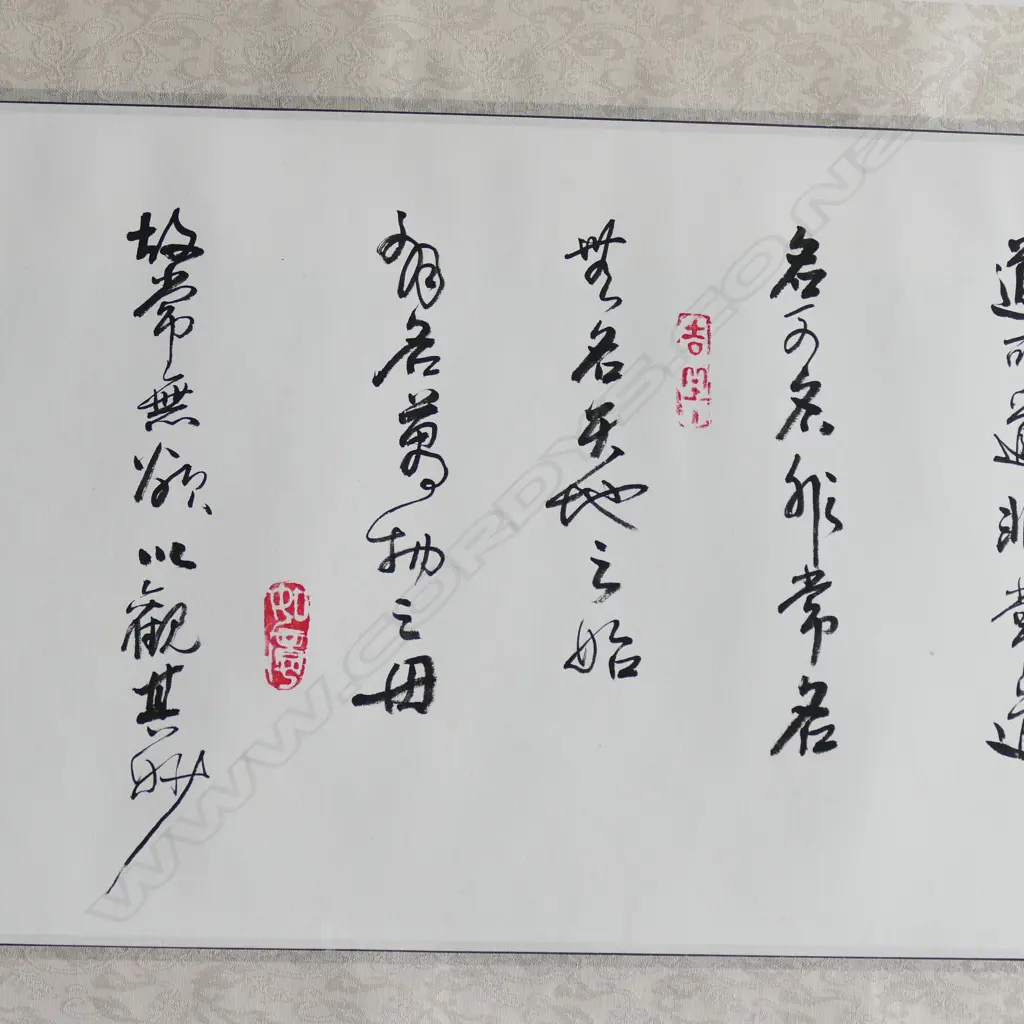 道可道非常道
名可名非常名
無名天地之始
有名萬物之母
故常無欲以觀其妙
如意
WWW.CORDYS.CO.NZ